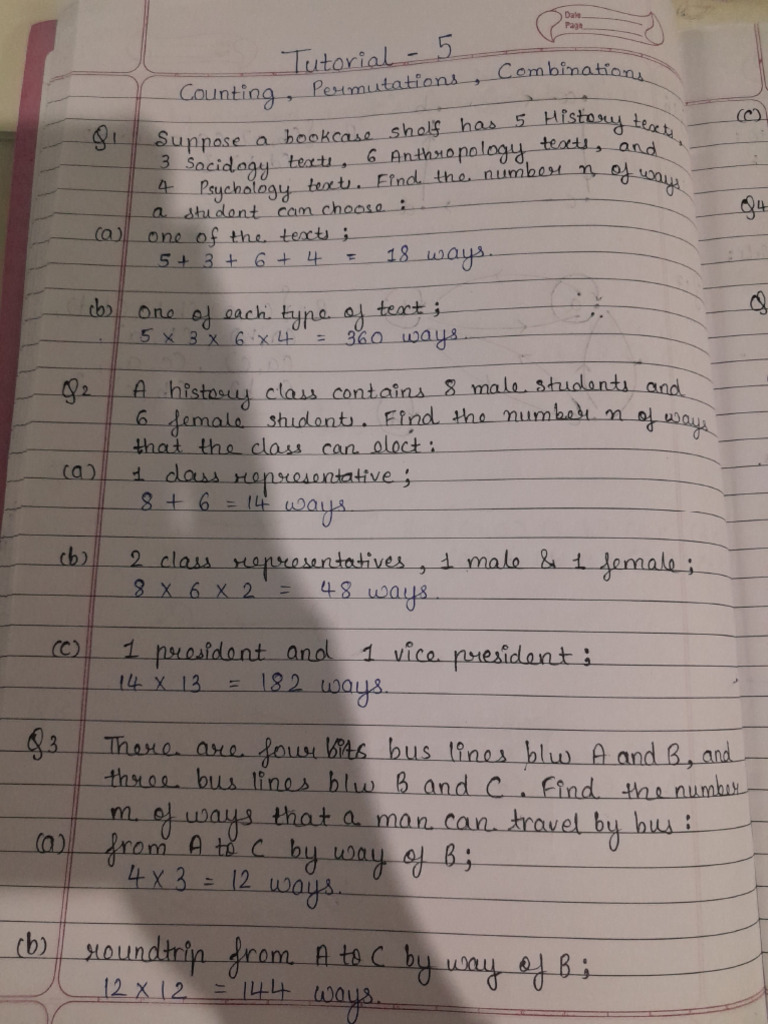 Date
Page
Tutorial - 5
Counting, Permutations, Combinations
Q1 Suppose a bookcase shelf has 5 History texts,
3 Sociology texts, 6 Anthropology texts, and
4 Psychology texts. Find the number n of ways
a student can choose:
(a) one of the texts;
5 + 3 + 6 + 4 = 18 ways.
(b) one of each type of text;
5 × 3 × 6 × 4 = 360 ways.
Q2 A history class contains 8 male students and
6 female students. Find the number n of ways
that the class can elect:
(a) 1 class representative;
8 + 6 = 14 ways
(b) 2 class representatives, 1 male & 1 female;
8 × 6 × 2 = 48 ways.
(c) 1 president and 1 vice president;
14 × 13 = 182 ways.
Q3 There are four bus lines b/w A and B, and
three bus lines b/w B and C. Find the number
m of ways that a man can travel by bus:
(a) from A to C by way of B;
4 × 3 = 12 ways.
(b) roundtrip from A to C by way of B;
12 × 12 = 144 ways.
(c)
Q4
Q